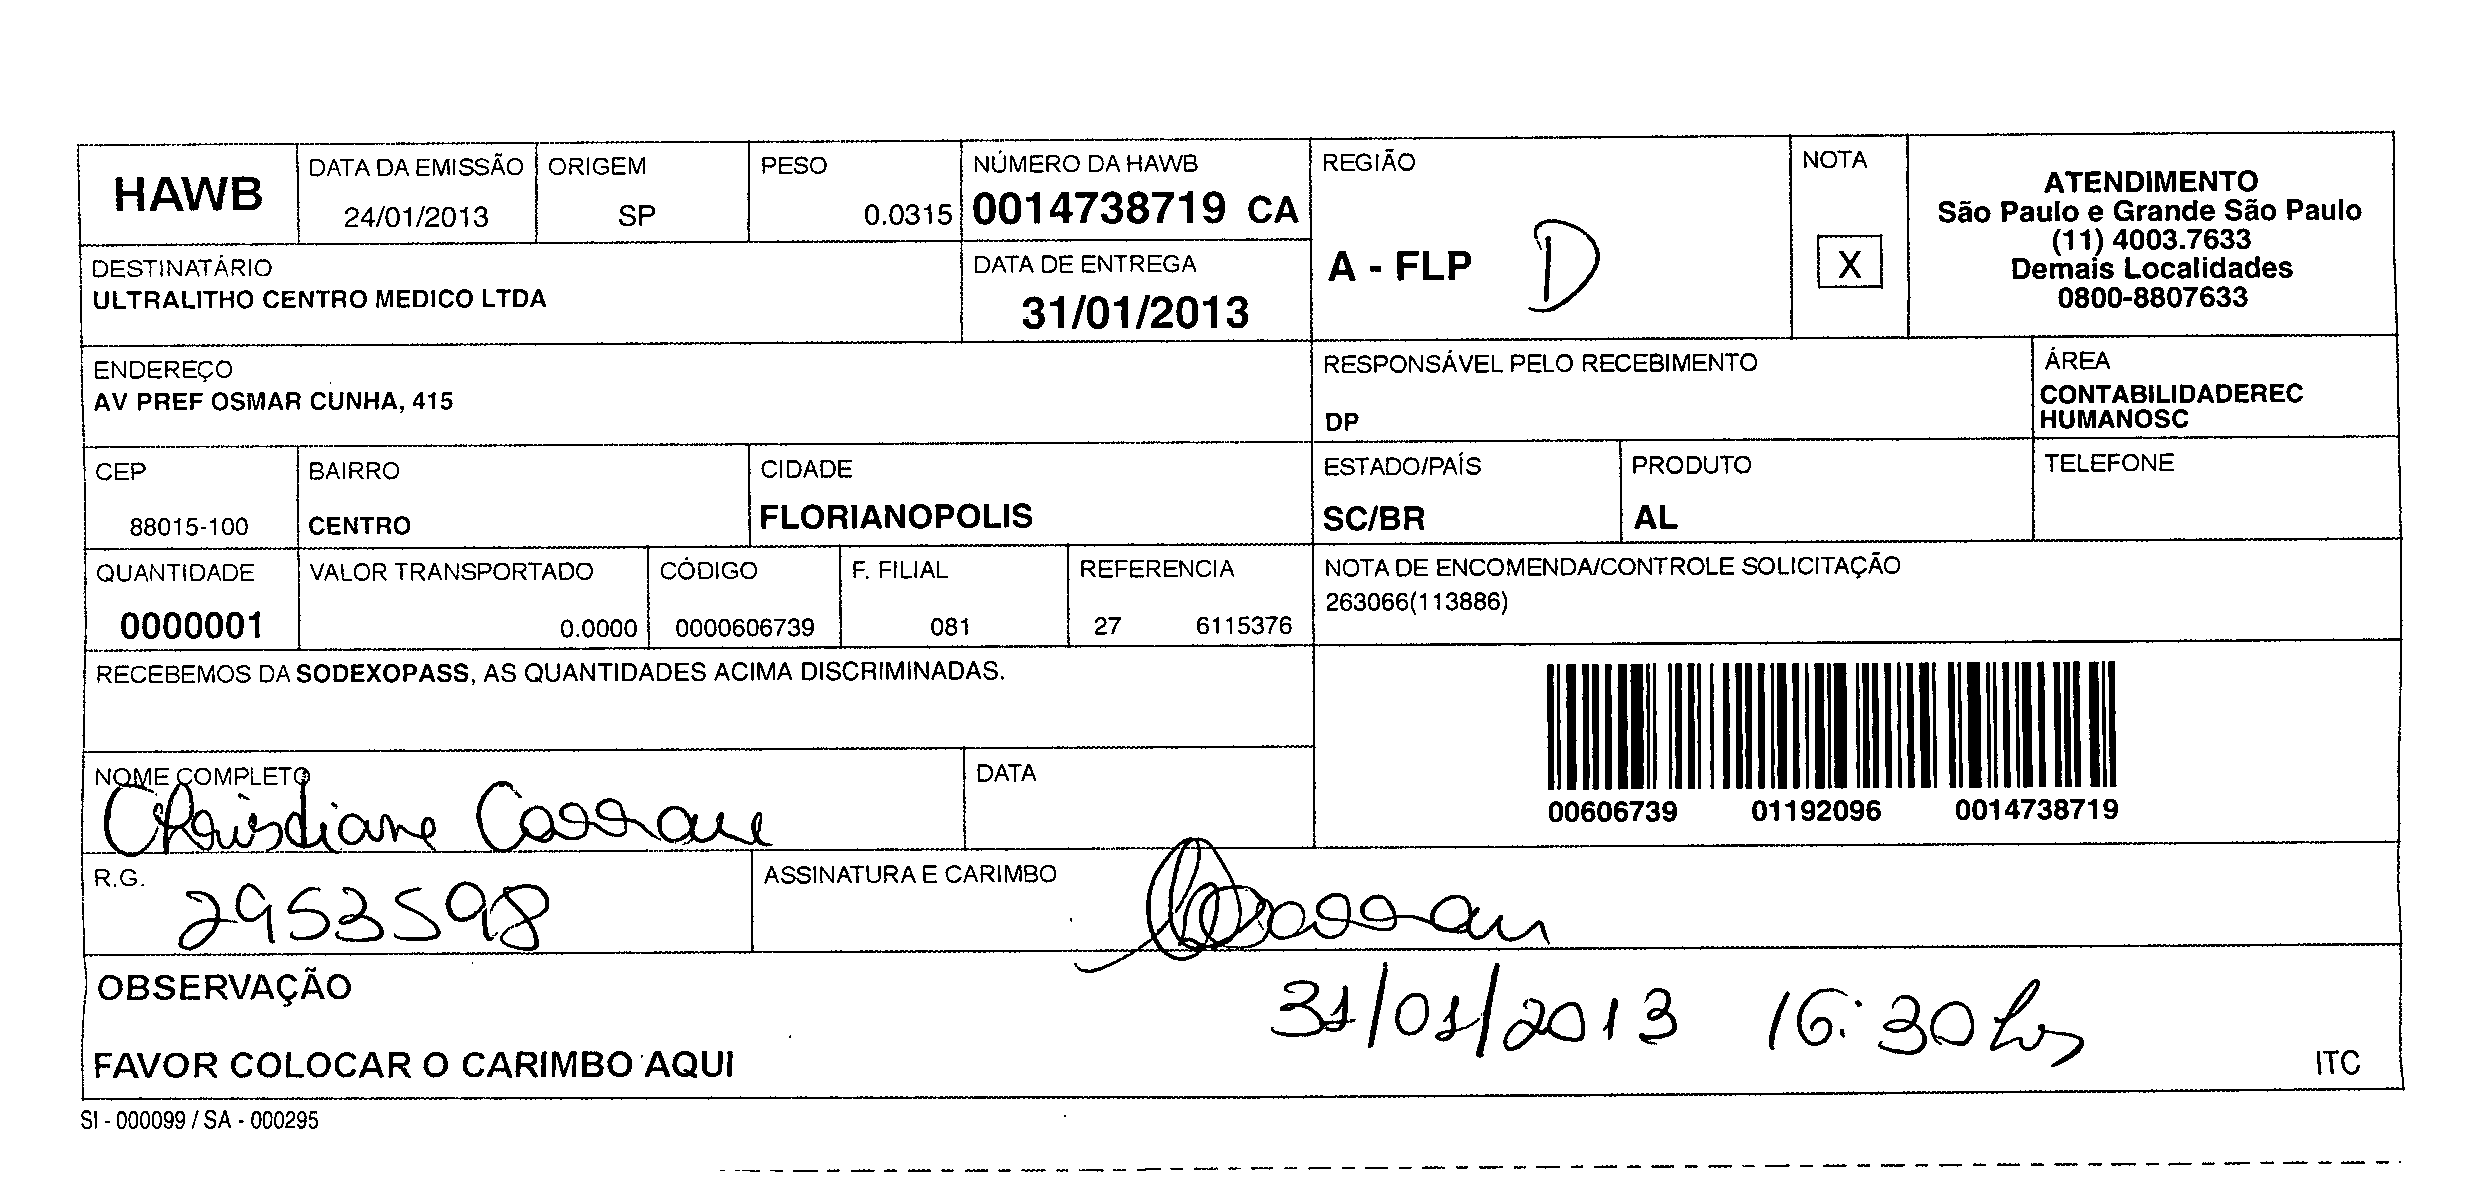 HAWB
DATA DA EMISSÃO
24/01/2013
ORIGEM
SP
PESO
0.0315
NÚMERO DA HAWB
0014738719 CA
REGIÃO
A - FLP D
NOTA
X
ATENDIMENTO
São Paulo e Grande São Paulo
(11) 4003.7633
Demais Localidades
0800-8807633
DESTINATÁRIO
ULTRALITHO CENTRO MEDICO LTDA
DATA DE ENTREGA
31/01/2013
ENDEREÇO
AV PREF OSMAR CUNHA, 415
RESPONSÁVEL PELO RECEBIMENTO
DP
ÁREA
CONTABILIDADEREC
HUMANOSC
CEP
88015-100
BAIRRO
CENTRO
CIDADE
FLORIANOPOLIS
ESTADO/PAÍS
SC/BR
PRODUTO
AL
TELEFONE
QUANTIDADE
0000001
VALOR TRANSPORTADO
0.0000
CÓDIGO
0000606739
F. FILIAL
081
REFERENCIA
27 6115376
NOTA DE ENCOMENDA/CONTROLE SOLICITAÇÃO
263066(113886)
RECEBEMOS DA SODEXOPASS, AS QUANTIDADES ACIMA DISCRIMINADAS.
00606739 01192096 0014738719
NOME COMPLETO
Christiane
DATA
R.G.
2953598
ASSINATURA E CARIMBO
OBSERVAÇÃO
31/01/2013 16:30 hs
FAVOR COLOCAR O CARIMBO AQUI
ITC
SI - 000099 / SA - 000295